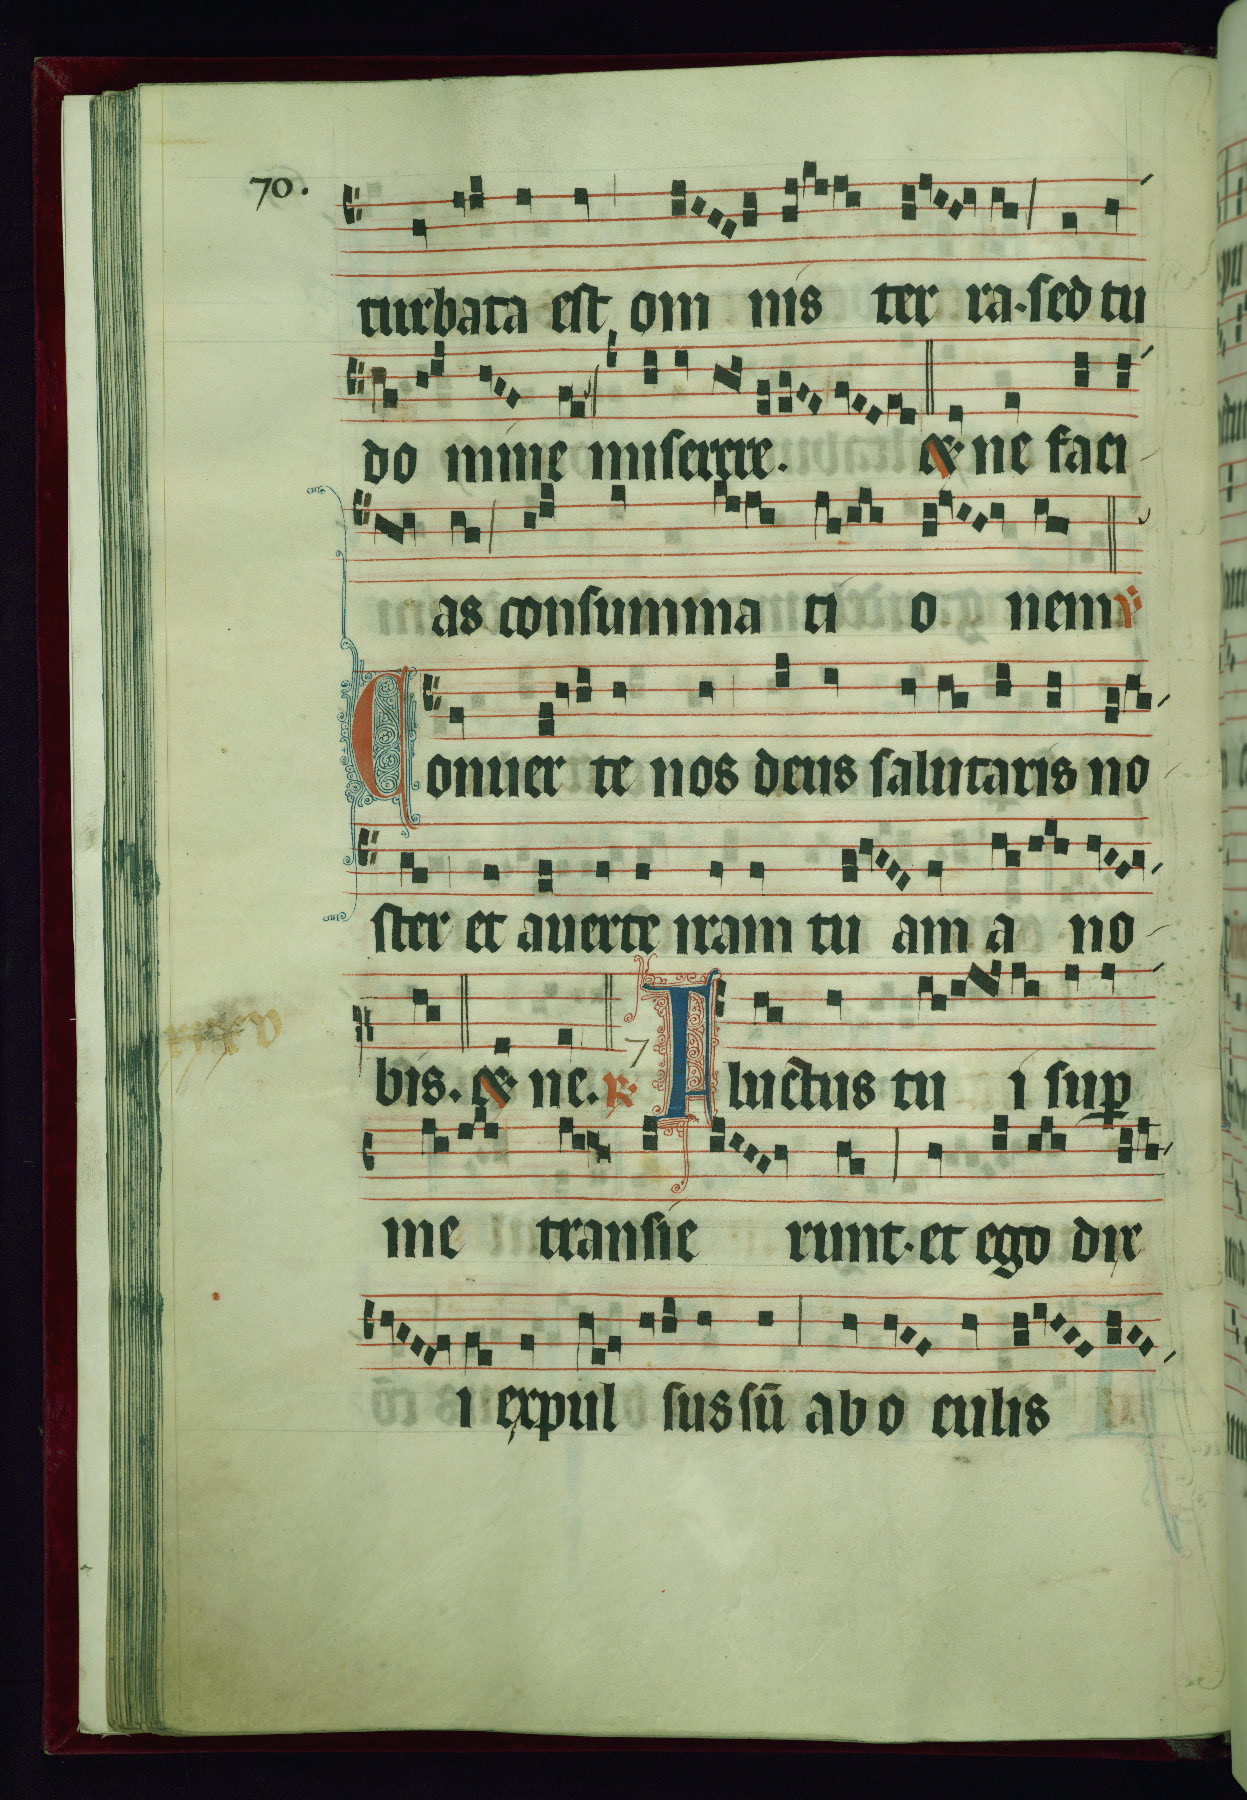 70.
turbata est om nis ter ra. sed tu
do mine miserere. & ne faci
as consumma ti o nem
Conuer te nos deus salutaris no
ster et auerte iram tu am a no
bis. & ne. Fluctus tu i sup
me transie runt. et ego dix
i expul sus sū ab o culis